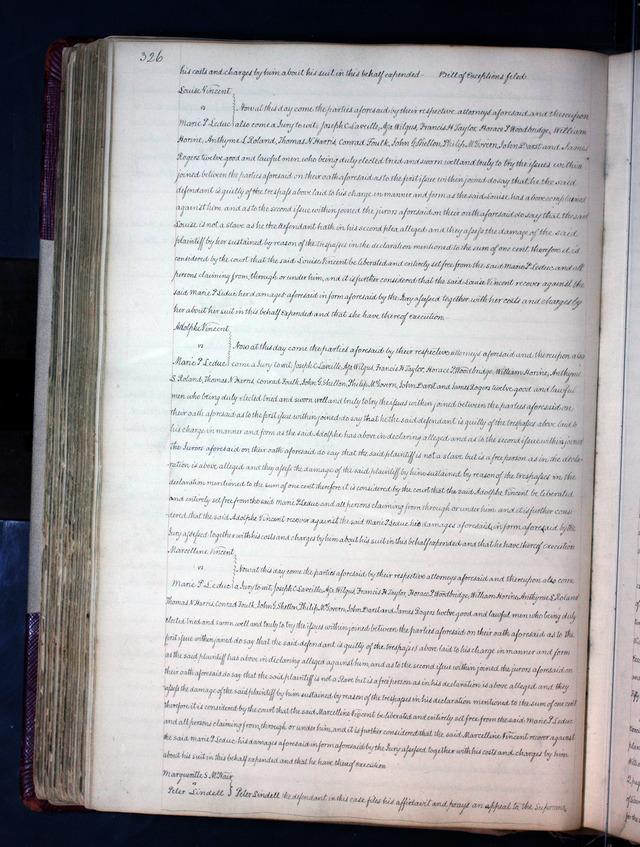 326
his costs and charges by him about his suit in this behalf expended - Bill of Exceptions filed.
Louise Vincent
vs
Marie P. Leduc
Now at this day come the parties aforesaid by their respective attorneys aforesaid and thereupon
also come a Jury to wit, Joseph C. Laveille, Asa Wilgus, Francis H Taylor, Horace P. Woodbridge, William
Horine, Anthyme S. Roland, Thomas N Harris, Conrad Foulk, John G Shelton, Philip McGovern, John Darst and James
Rogers twelve good and lawful men who being duly elected tried and sworn well and truly to try the issues within
joined between the parties aforesaid on their oath aforesaid as to the first issue within joined do say that he the said
defendant is guilty of the trespass above laid to his charge in manner and form as the said Louise, has above complained
against him, and as to the second issue within joined the jurors aforesaid on their oath aforesaid do say that the said
Louise is not a slave as he the defendant hath in his second plea alleged and they assess the damage of the said
plaintiff by her sustained by reason of the trespasses in the declaration mentioned to the sum of one cent therefore it is
considered by the court that the said Louise Vincent be liberated and entirely set free from the said Marie P Leduc, and all
persons claiming from, through or under him, and it is further considered that the said Louise Vincent recover against the
said Marie P Leduc her damages aforesaid in form aforesaid by the Jury assessed together with her costs and charges by
her about her suit in this behalf expended and that she have thereof execution
Adolphe Vincent
vs
Marie P. Leduc
Now at this day come the parties aforesaid by their respective attorneys aforesaid and thereupon also
come a Jury to wit, Joseph C. Laveille, Asa Wilgus, Francis H Taylor, Horace P. Woodbridge, William Horine, Anthyme
S Roland, Thomas N Harris, Conrad Foulk, John G. Shelton, Philip McGovern, John Darst and James Rogers twelve good and lawful
men who being duly elected tried and sworn well and truly to try the issues within joined between the parties aforesaid, on
their oath aforesaid as to the first issue within joined do say that he the said defendant is guilty of the trespass above laid to
his charge in manner and form as the said Adolphe has above in declaring alleged and as to the second issue within joined
the Jurors aforesaid on their oath aforesaid do say that the said plaintiff is not a slave but is a free person as in the decla-
ration is above alleged and they assess the damage of the said plaintiff by him sustained by reason of the trespasses in the
declaration mentioned to the sum of one cent therefore it is considered by the court that the said Adolphe Vincent be liberated
and entirely set free from the said Marie P. Leduc and all persons claiming from through or under him and it is further consi-
dered that the said Adolphe Vincent recover against the said Marie P Leduc his damages aforesaid, in form aforesaid by the
Jury assessed together with his costs and charges by him about his suit in this behalf expended and that he have thereof execution
Marcelline Vincent
vs
Marie P Leduc
Now at this day come the parties aforesaid by their respective attorneys aforesaid and thereupon also come
a Jury to wit, Joseph C Laveille, Asa Wilgus, Francis H Taylor, Horace P Woodbridge, William Horine, Anthyme S Roland
Thomas N Harris, Conrad Foulk, John G Shelton, Philip McGovern, John Darst and James Rogers twelve good and lawful men who being duly
elected tried and sworn well and truly to try the issues within joined between the parties aforesaid on their oath aforesaid as to the
first issue within joined do say that the said defendant is guilty of the trespasses above laid to his charge in manner and form
as the said plaintiff has above in declaring alleged against him, and as to the second issue within joined the jurors aforesaid on
their oath aforesaid do say that the said plaintiff is not a Slave but is a free person as in his declaration is above alleged and they
assess the damage of the said plaintiff by him sustained by reason of the trespasses in his declaration mentioned to the sum of one cent
therefore it is considered by the court that the said Marcelline Vincent be liberated and entirely set free from the said Marie P Leduc
and all persons claiming from, through or under him, and it is further considered that the said Marcelline Vincent recover against
the said Marie P. Leduc his damages aforesaid in form aforesaid by the Jury assessed together with his costs and charges by him
about his suit in this behalf expended and that he have thereof execution
Margueritte S McNair
vs
Peter Lindell
Peter Lindell the defendant in this case files his affidavit and prays an appeal to the Supreme